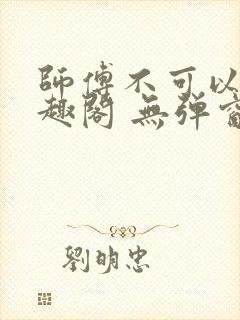 師傅不可以
趣閣 無彈窗
劉明忠